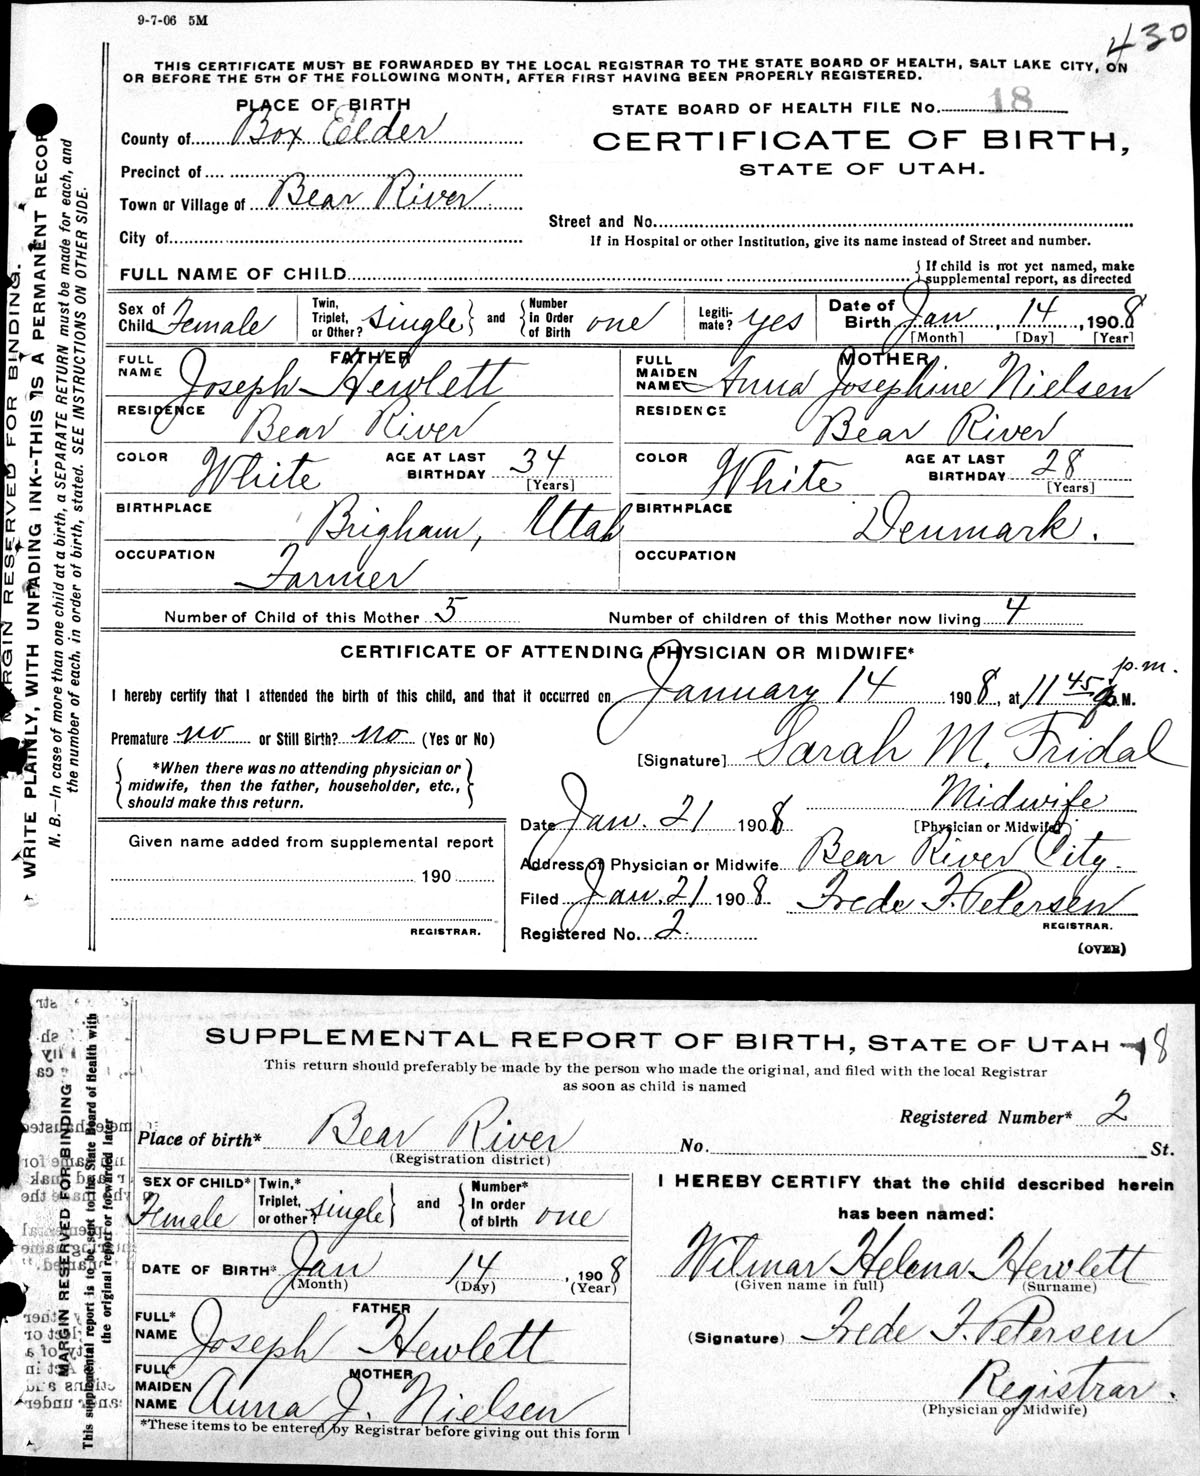 9-7-06 5M
430
THIS CERTIFICATE MUST BE FORWARDED BY THE LOCAL REGISTRAR TO THE STATE BOARD OF HEALTH, SALT LAKE CITY, ON
OR BEFORE THE 5TH OF THE FOLLOWING MONTH, AFTER FIRST HAVING BEEN PROPERLY REGISTERED.
PLACE OF BIRTH
STATE BOARD OF HEALTH FILE No. 18
County of Box Elder
CERTIFICATE OF BIRTH,
STATE OF UTAH.
Precinct of
Town or Village of Bear River
Street and No.
City of
If in Hospital or other Institution, give its name instead of Street and number.
FULL NAME OF CHILD
{If child is not yet named, make
supplemental report, as directed
Sex of Child Female
Twin, Triplet, or Other? single } and { Number In Order of Birth one
Legiti-mate? yes
Date of Birth Jan, 14, 1908
[Month] [Day] [Year]
FATHER
FULL NAME Joseph Hewlett
MOTHER
FULL MAIDEN NAME Anna Josephine Nielsen
RESIDENCE Bear River
RESIDENCE Bear River
COLOR White AGE AT LAST BIRTHDAY 34 [Years]
COLOR White AGE AT LAST BIRTHDAY 28 [Years]
BIRTHPLACE Brigham, Utah
BIRTHPLACE Denmark.
OCCUPATION Farmer
OCCUPATION
Number of Child of this Mother 5 Number of children of this Mother now living 4
CERTIFICATE OF ATTENDING PHYSICIAN OR MIDWIFE*
p.m.
I hereby certify that I attended the birth of this child, and that it occurred on January 14 1908, at 11 45 M.
Premature no or Still Birth? no (Yes or No)
[Signature] Sarah M. Fridal
{ *When there was no attending physician or
midwife, then the father, householder, etc.,
should make this return. }
Midwife
[Physician or Midwife]
Date Jan. 21 1908
Given name added from supplemental report
Address of Physician or Midwife Bear River City.
190
Filed Jan. 21 1908 Frede F. Petersen
REGISTRAR.
REGISTRAR.
Registered No. 2
(OVER)
MARGIN RESERVED FOR BINDING.
WRITE PLAINLY, WITH UNFADING INK--THIS IS A PERMANENT RECORD
N. B.—In case of more than one child at a birth, a SEPARATE RETURN must be made for each, and
the number of each, in order of birth, stated. SEE INSTRUCTIONS ON OTHER SIDE.
SUPPLEMENTAL REPORT OF BIRTH, STATE OF UTAH 18
This return should preferably be made by the person who made the original, and filed with the local Registrar
as soon as child is named
Registered Number* 2
Place of birth* Bear River No. St.
(Registration district)
SEX OF CHILD* Female
Twin,* Triplet, or other? single } and { Number* In order of birth one
I HEREBY CERTIFY that the child described herein
has been named:
DATE OF BIRTH* Jan 14, 1908
(Month) (Day) (Year)
Wilmar Helena Hewlett
(Given name in full) (Surname)
FATHER
FULL* NAME Joseph Hewlett
(Signature) Frede F. Petersen
MOTHER
FULL* MAIDEN NAME Anna J. Nielsen
Registrar.
(Physician or Midwife)
*These items to be entered by Registrar before giving out this form
MARGIN RESERVED FOR BINDING
This supplemental report is to be sent to the State Board of Health with
the original report or forwarded later